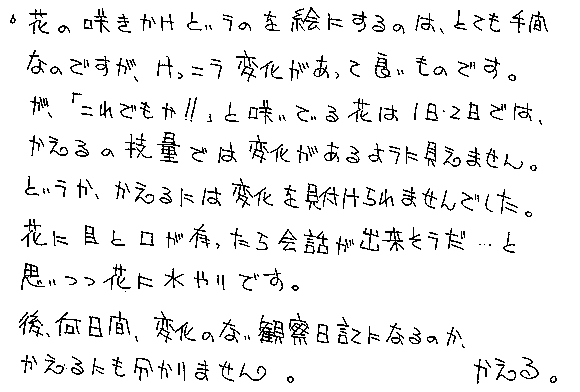 。花の咲きかけというのを絵にするのは、とても手間
なのですが、けっこう変化があって良いものです。
が、「これでもか!!」と咲いている花は1日・2日では、
かえるの技量では変化があるように見えません。
というか、かえるには変化を見付けられませんでした。
花に目と口が有ったら会話が出来そうだ…と
思いつつ花に水やりです。
後、何日間、変化のない観察日記になるのか、
かえるにも分かりません。 かえる。